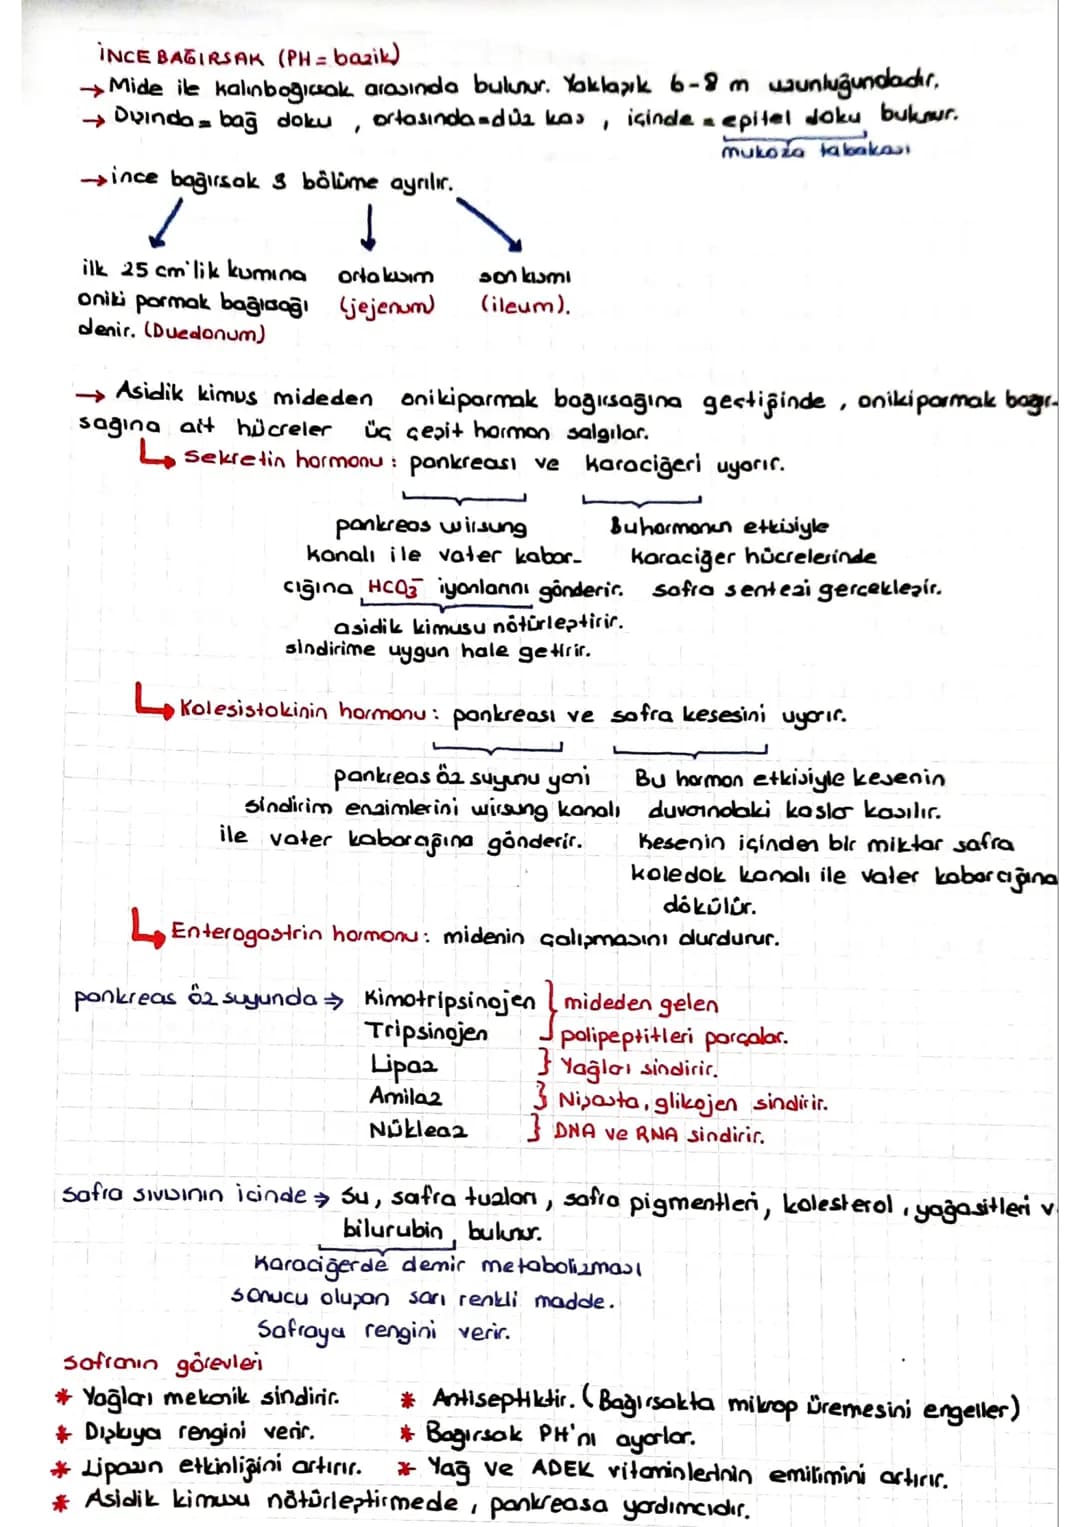 İNCE BAĞIRSAK (PH = bazik)
→ Mide ile kalınbağırsak arasında bulunur. Yaklaşık 6-8 m uzunluğundadır.
→ Dışında = bağ doku , ortasında = düz kas , içinde = epitel doku bulunur.
mukoza tabakası
→ ince bağırsak 3 bölüme ayrılır.
ilk 25 cm'lik kısmına ortakısım son kısmı
oniki parmak bağırsağı (jejenum) (ileum).
denir. (Duedonum)
→ Asidik kimus mideden onikiparmak bağırsağına geçtiğinde , onikiparmak bağır-
sağına ait hücreler üç çeşit hormon salgılar.
Sekretin hormonu : pankreası ve karaciğeri uyarır.
pankreas wirsung Bu hormonun etkisiyle
kanalı ile vater kabar- karaciğer hücrelerinde
cığına HCO3⁻ iyonlarını gönderir. safra sentezi gerçekleşir.
asidik kimusu nötürleştirir.
sindirime uygun hale getirir.
Kolesistokinin hormonu : pankreası ve safra kesesini uyarır.
pankreas öz suyunu yani Bu hormon etkisiyle kesenin
sindirim enzimlerini wirsung kanalı duvarındaki kaslar kasılır.
ile vater kabarağına gönderir. Kesenin içinden bir miktar safra
koledok kanalı ile vater kabarcığına
dökülür.
Enterogastrin hormonu : midenin çalışmasını durdurur.
pankreas öz suyunda ⇒ Kimotripsinojen } mideden gelen
Tripsinojen polipeptitleri parçalar.
Lipaz } Yağları sindirir.
Amilaz } Nişasta, glikojen sindirir.
Nükleaz } DNA ve RNA sindirir.
Safra sıvısının içinde ⇒ Su, safra tuzları, safra pigmentleri, kolesterol, yağasitleri v
bilurubin bulunur.
Karaciğerde demir metabolizması
sonucu oluşan sarı renkli madde.
Safraya rengini verir.
Safranın görevleri
* Yağları mekanik sindirir. * Antiseptiktir. (Bağırsakta mikrop üremesini engeller)
* Dışkıya rengini verir. * Bağırsak PH'nı ayarlar.
* Lipazın etkinliğini artırır. * Yağ ve ADEK vitaminlerinin emilimini artırır.
* Asidik kimusu nötürleştirmede , pankreasa yardımcıdır.